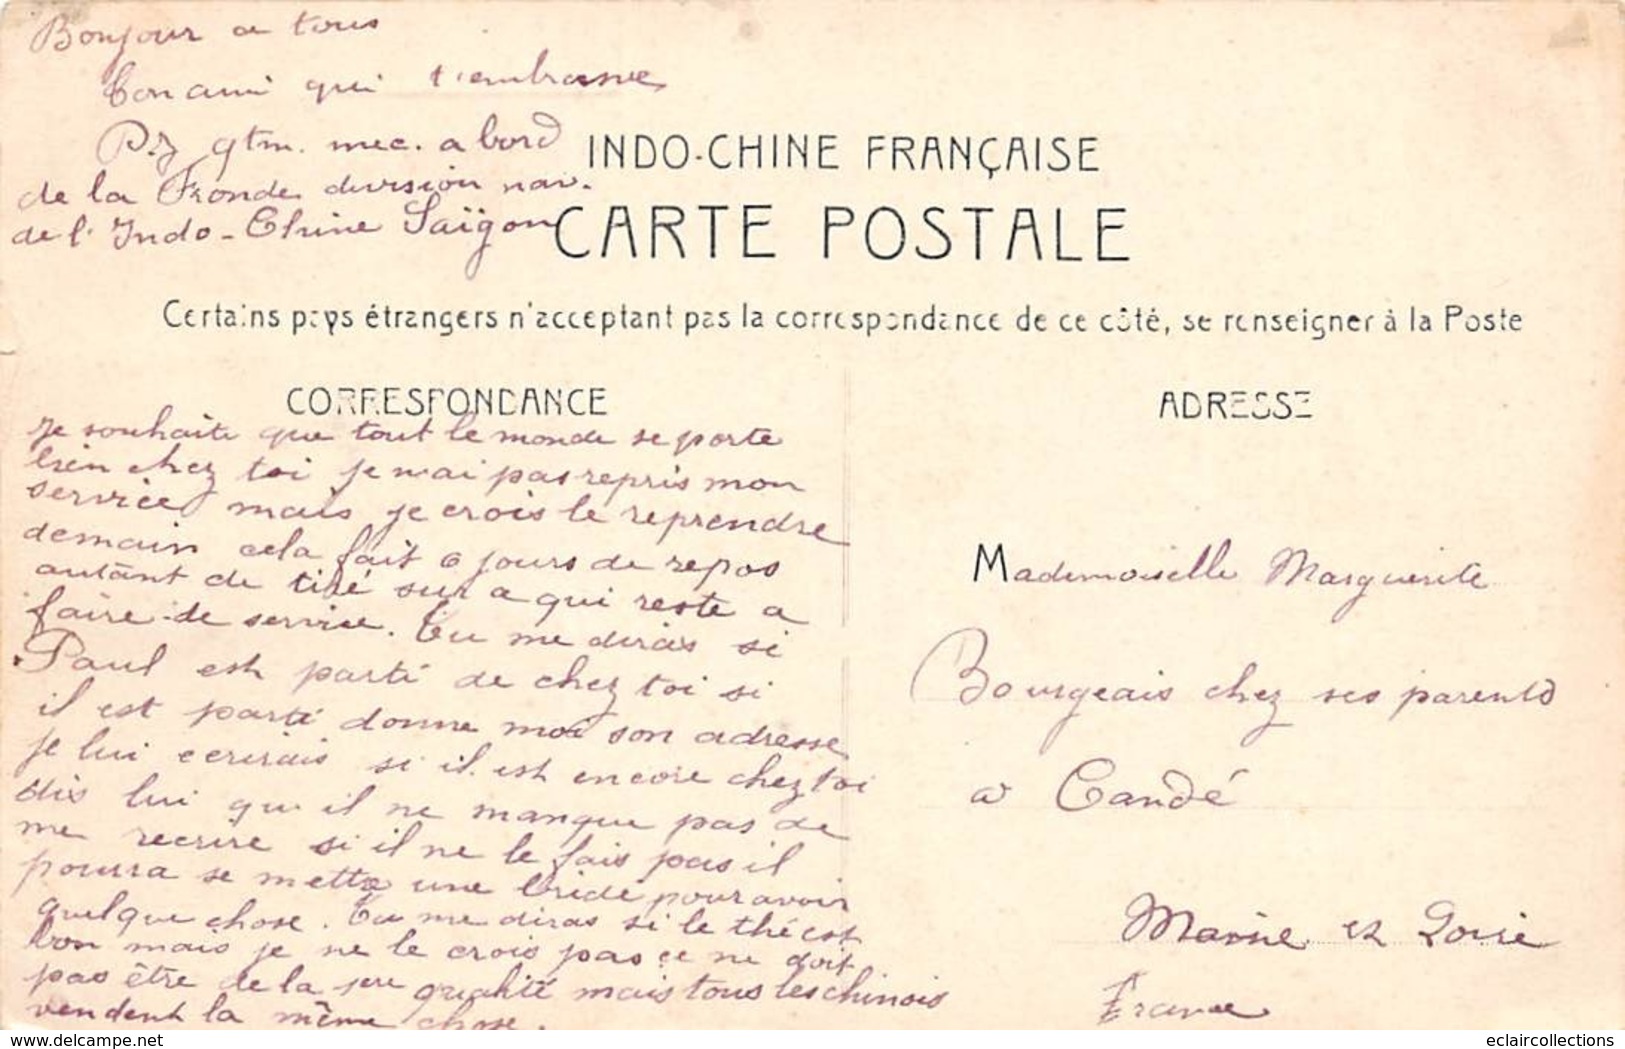 Bonjour a tous
ton ami qui t'embrasse
P.J qtm. mec. a bord
de la Fronde division nav.
de l'Indo-Chine Saïgon
INDO-CHINE FRANÇAISE
CARTE POSTALE
Certains pays étrangers n'acceptant pas la correspondance de ce côté, se renseigner à la Poste
CORRESPONDANCE
je souhaite que tout le monde se porte
bien chez toi je n'ai pas repris mon
service mais je crois le reprendre
demain cela fait 6 jours de repos
autant de tiré sur a qui reste a
faire de service. Tu me dirais si
Paul est parti de chez toi si
il est parti donne moi son adresse
je lui ecrirais si il est encore chez toi
dis lui qu il ne manque pas de
me recrire si il ne le fais pas il
pourra se mettre une bride pour avoir
quelque chose. Tu me diras si le thé est
bon mais je ne le crois pas ce ne doit
pas être de la 1ere qualité mais tous les chinois
vendent la même chose.
ADRESSE
Mademoiselle Marguerite
Bourgeais chez ses parents
a Candé
Maine et Loire
France
eclaircollections